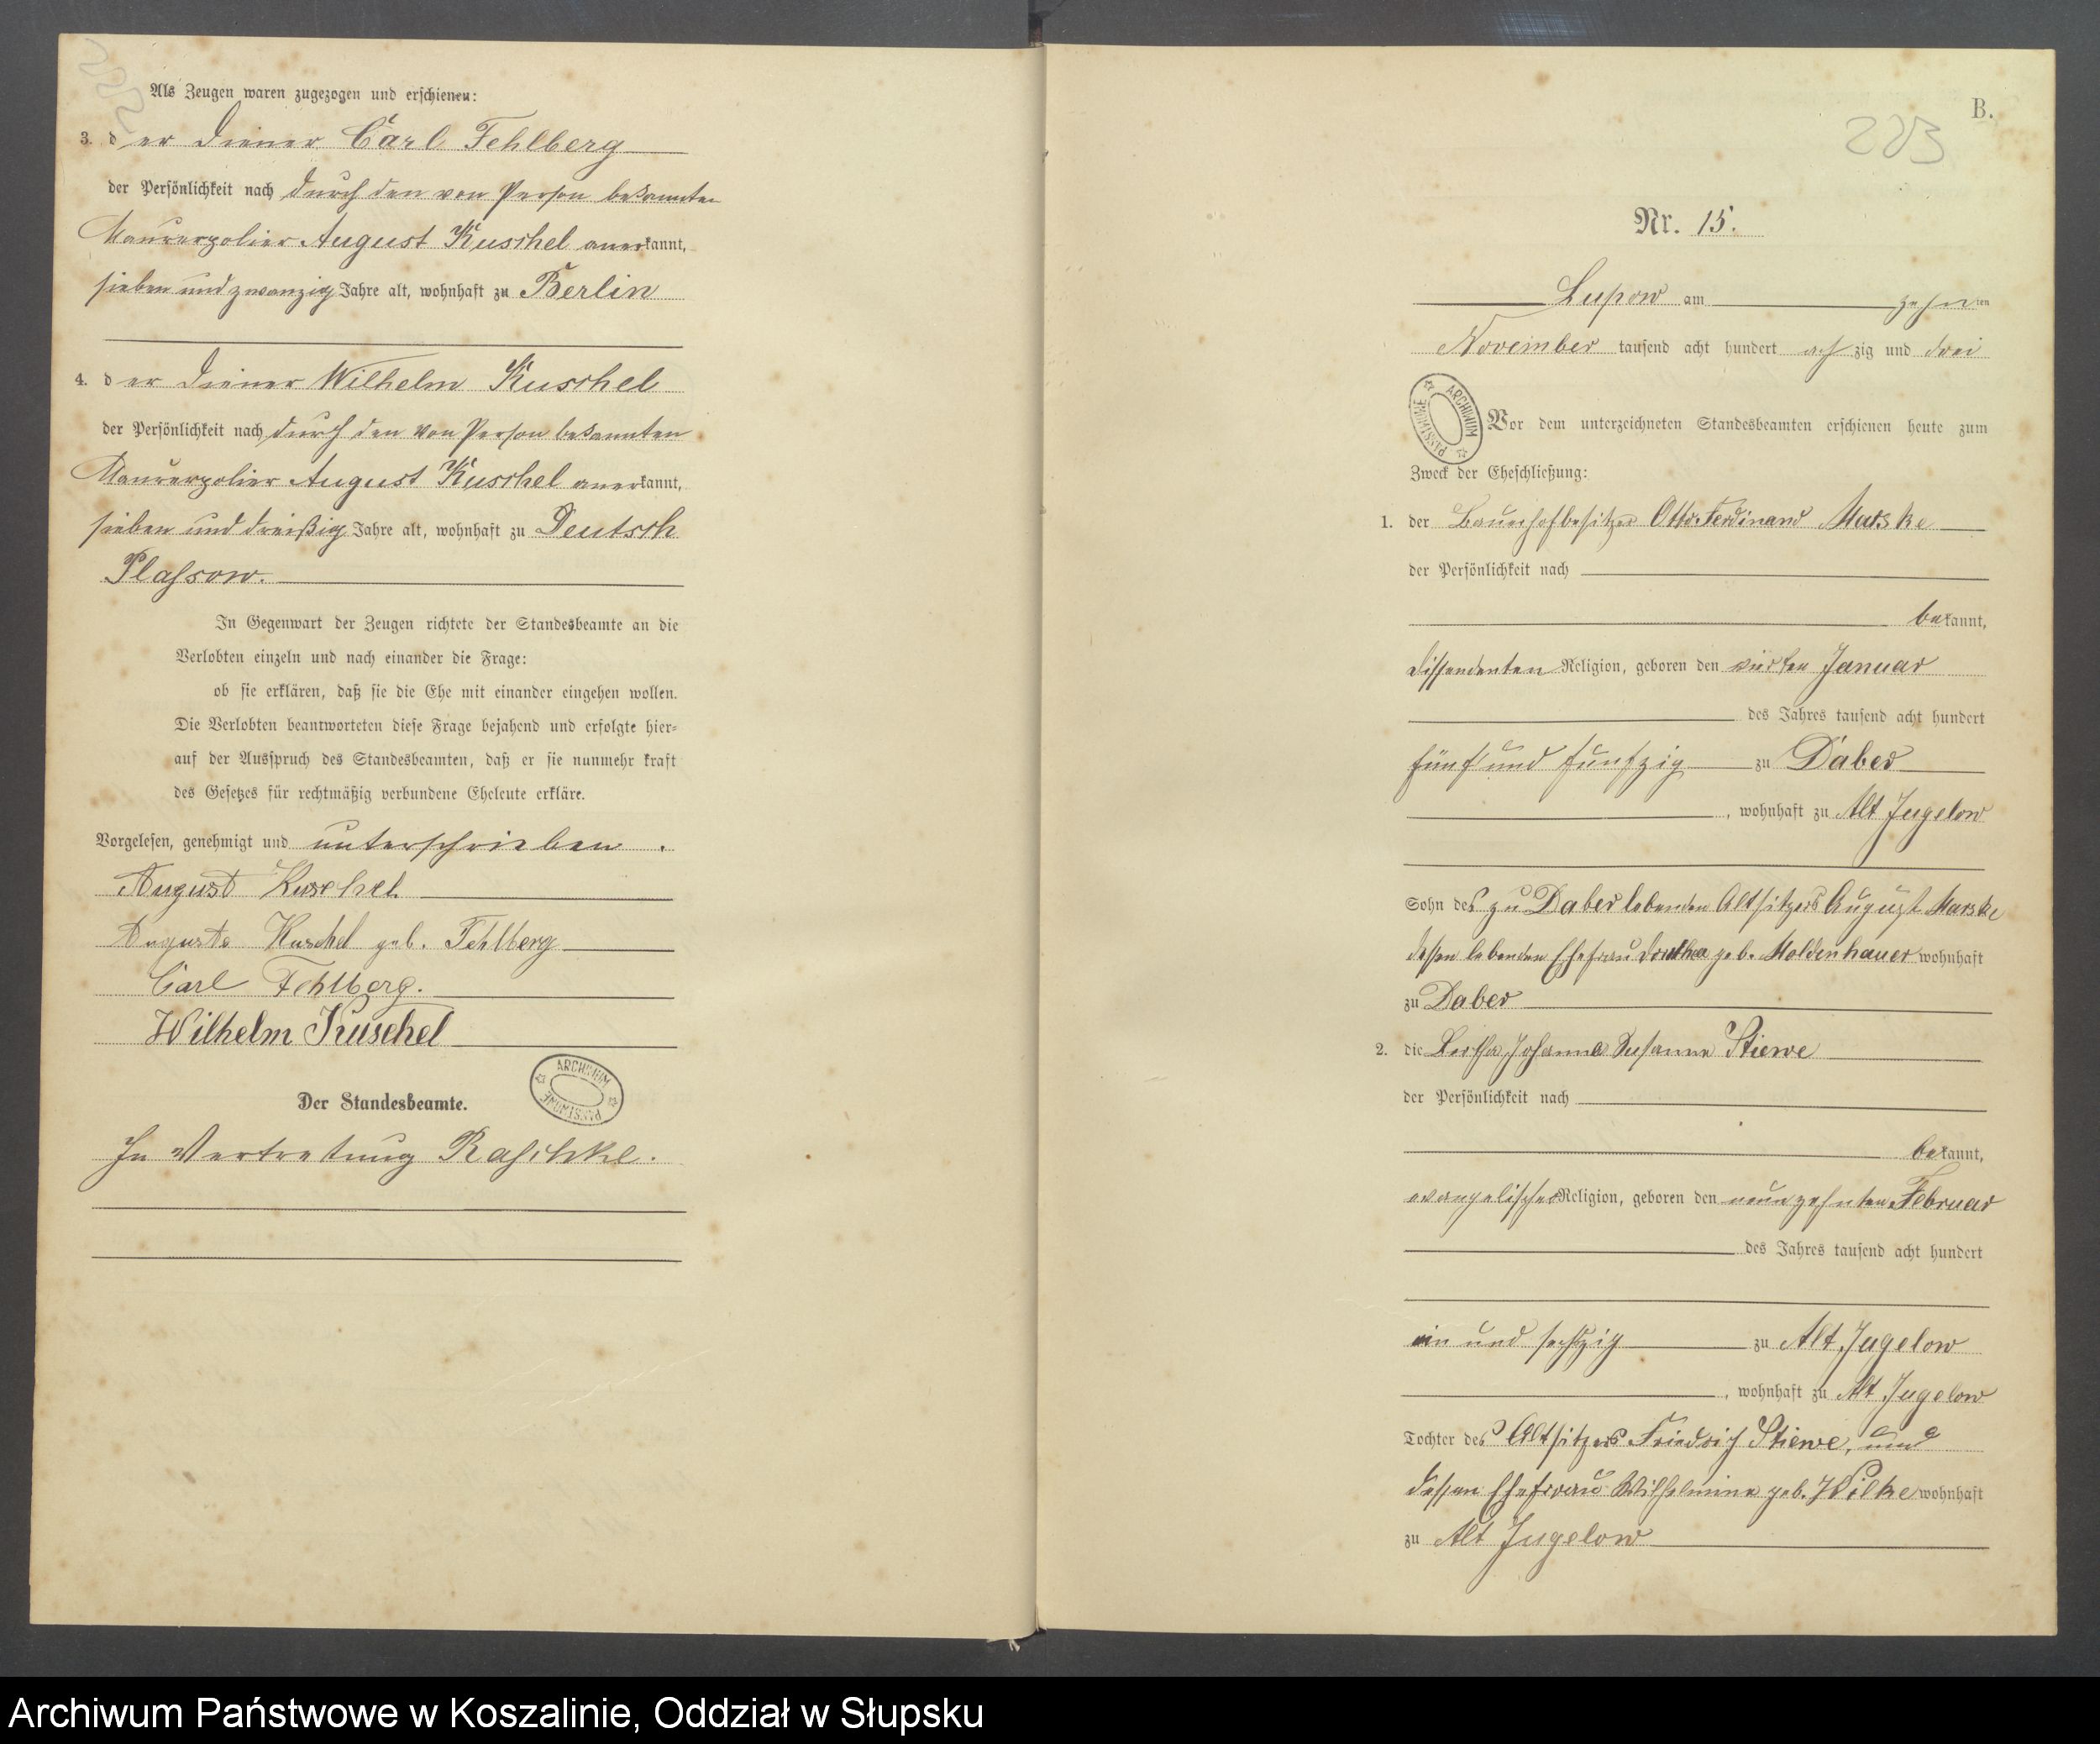 Als Zeugen waren zugezogen und erschienen:
3. der Diener Carl Fehlberg
der Persönlichkeit nach durch den von Person bekannten
Maurerpolier August Kuschel anerkannt,
sieben und zwanzig Jahre alt, wohnhaft zu Berlin
4. der Diener Wilhelm Kuschel
der Persönlichkeit nach durch den von Person bekannten
Maurerpolier August Kuschel anerkannt,
sieben und dreißig Jahre alt, wohnhaft zu Deutsch
Plassow.
In Gegenwart der Zeugen richtete der Standesbeamte an die
Verlobten einzeln und nach einander die Frage:
ob sie erklären, daß sie die Ehe mit einander eingehen wollen.
Die Verlobten beantworteten diese Frage bejahend und erfolgte hier-
auf der Ausspruch des Standesbeamten, daß er sie nunmehr kraft
des Gesetzes für rechtmäßig verbundene Eheleute erkläre.
Vorgelesen, genehmigt und unterschrieben.
August Kuschel
Auguste Kuschel geb. Fehlberg
Carl Fehlberg.
Wilhelm Kuschel
ARCHIWUM PAŃSTWOWE
Der Standesbeamte.
In Vertretung Raschke.
B.
203
Nr. 15.
Lupow am zehnten
November tausend acht hundert achzig und drei
ARCHIWUM PAŃSTWOWE
Vor dem unterzeichneten Standesbeamten erschienen heute zum
Zweck der Eheschließung:
1. der Bauerhofbesitzer Otto Ferdinand Marske
der Persönlichkeit nach
bekannt,
dissendenten Religion, geboren den vierten Januar
des Jahres tausend acht hundert
fünf und funfzig zu Daber
, wohnhaft zu Alt Jugelow
Sohn des zu Daber lebenden Altsitzers August Marske
dessen lebenden Ehefrau geb. Moldenhauer wohnhaft
zu Daber
2. die Bertha Johanne Susanna Stiewe
der Persönlichkeit nach
bekannt,
evangelischer Religion, geboren den neunzehnten Februar
des Jahres tausend acht hundert
ein und sechzig zu Alt Jugelow
, wohnhaft zu Alt Jugelow
Tochter des Altsitzers Friedrich Stiewe, und
dessen Ehefrau Wilhelmine geb. Wilke wohnhaft
zu Alt Jugelow
Archiwum Państwowe w Koszalinie, Oddział w Słupsku